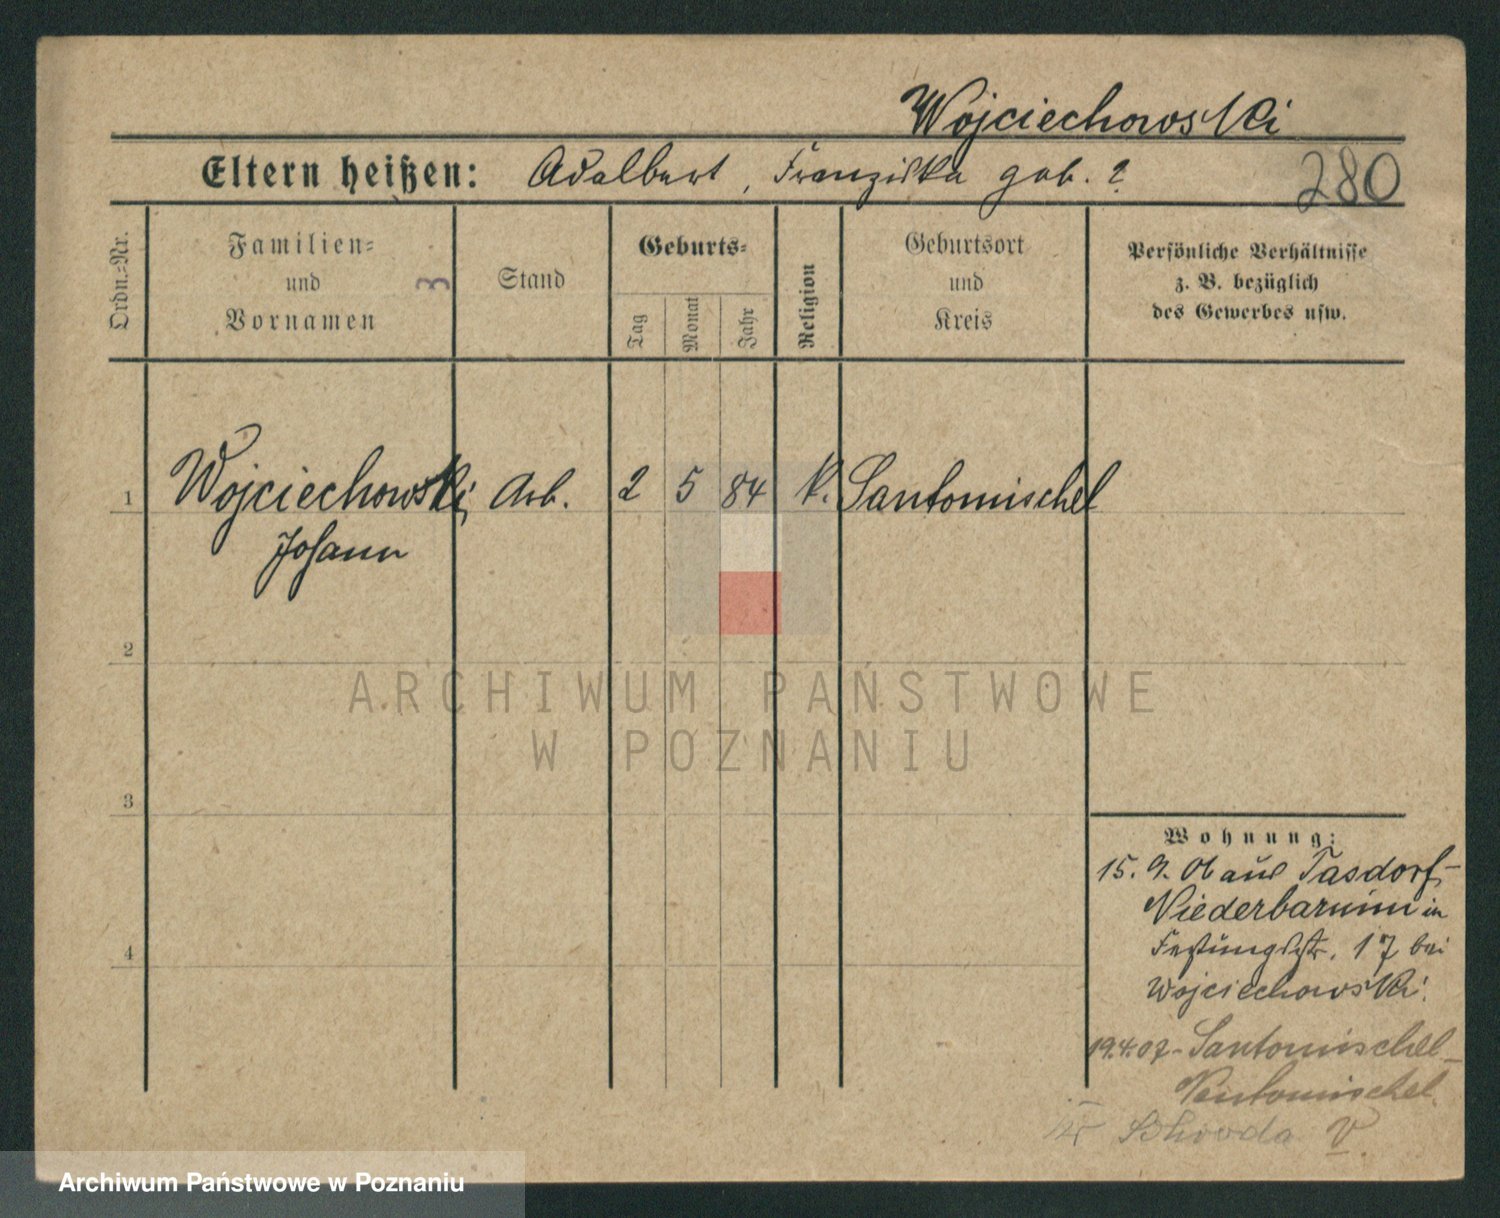 Wojciechowski
Eltern heißen: Adalbert, Franziska geb. ?
280
Ordn.=Nr.
Familien=
und
Vornamen
3
Stand
Geburts=
Tag
Monat
Jahr
Religion
Geburtsort
und
Kreis
Persönliche Verhältnisse
z. B. bezüglich
des Gewerbes usw.
1 Wojciechowski, Arb. 2 5 84 k. Santomischel
Johann
2
ARCHIWUM PAŃSTWOWE
W POZNANIU
3
4
Wohnung:
15. 9. 06 aus Tasdorf-
Niederbarnim in
Festungsstr. 17 bei
Wojciechowski.
19.4.07 - Santomischel-
Santomischel.
Schroda V.
Archiwum Państwowe w Poznaniu